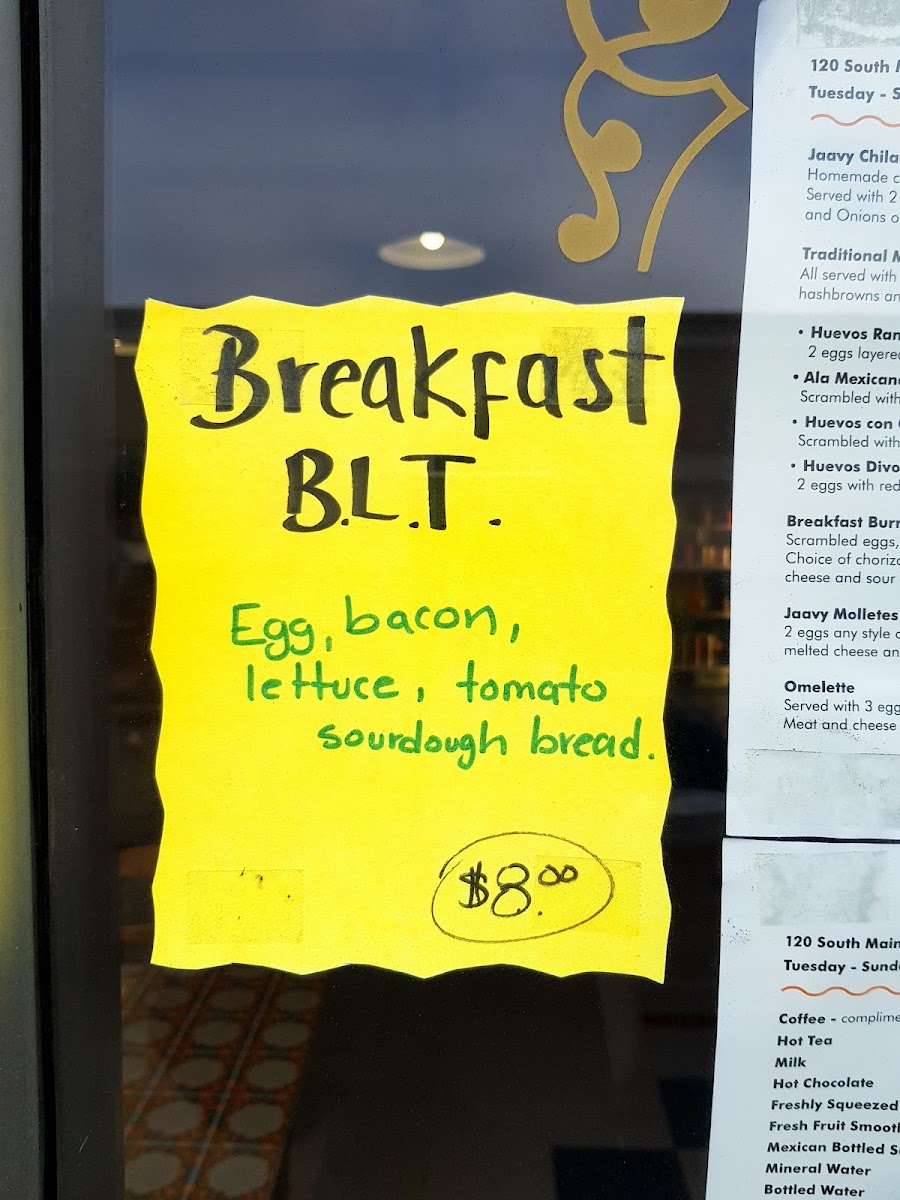 Breakfast
B.L.T.
Egg, bacon,
lettuce, tomato
sourdough bread.
$8.00
120 South
Tuesday - S
Jaavy
Homemade
Served with 2
and Onions
Traditional
All served with
hashbrowns
• Huevos
2 eggs
• Ala
Scrambled with
• Huevos con
Scrambled with
• Huevos
2 eggs with red
Breakfast
Scrambled eggs,
Choice of
cheese and sour
Jaavy Molletes
2 eggs any style
melted cheese
Omelette
Served with 3
Meat and cheese
120 South Main
Tuesday -
Coffee -
Hot Tea
Milk
Hot Chocolate
Freshly Squeezed
Fresh Fruit
Mexican Bottled
Mineral Water
Bottled Water